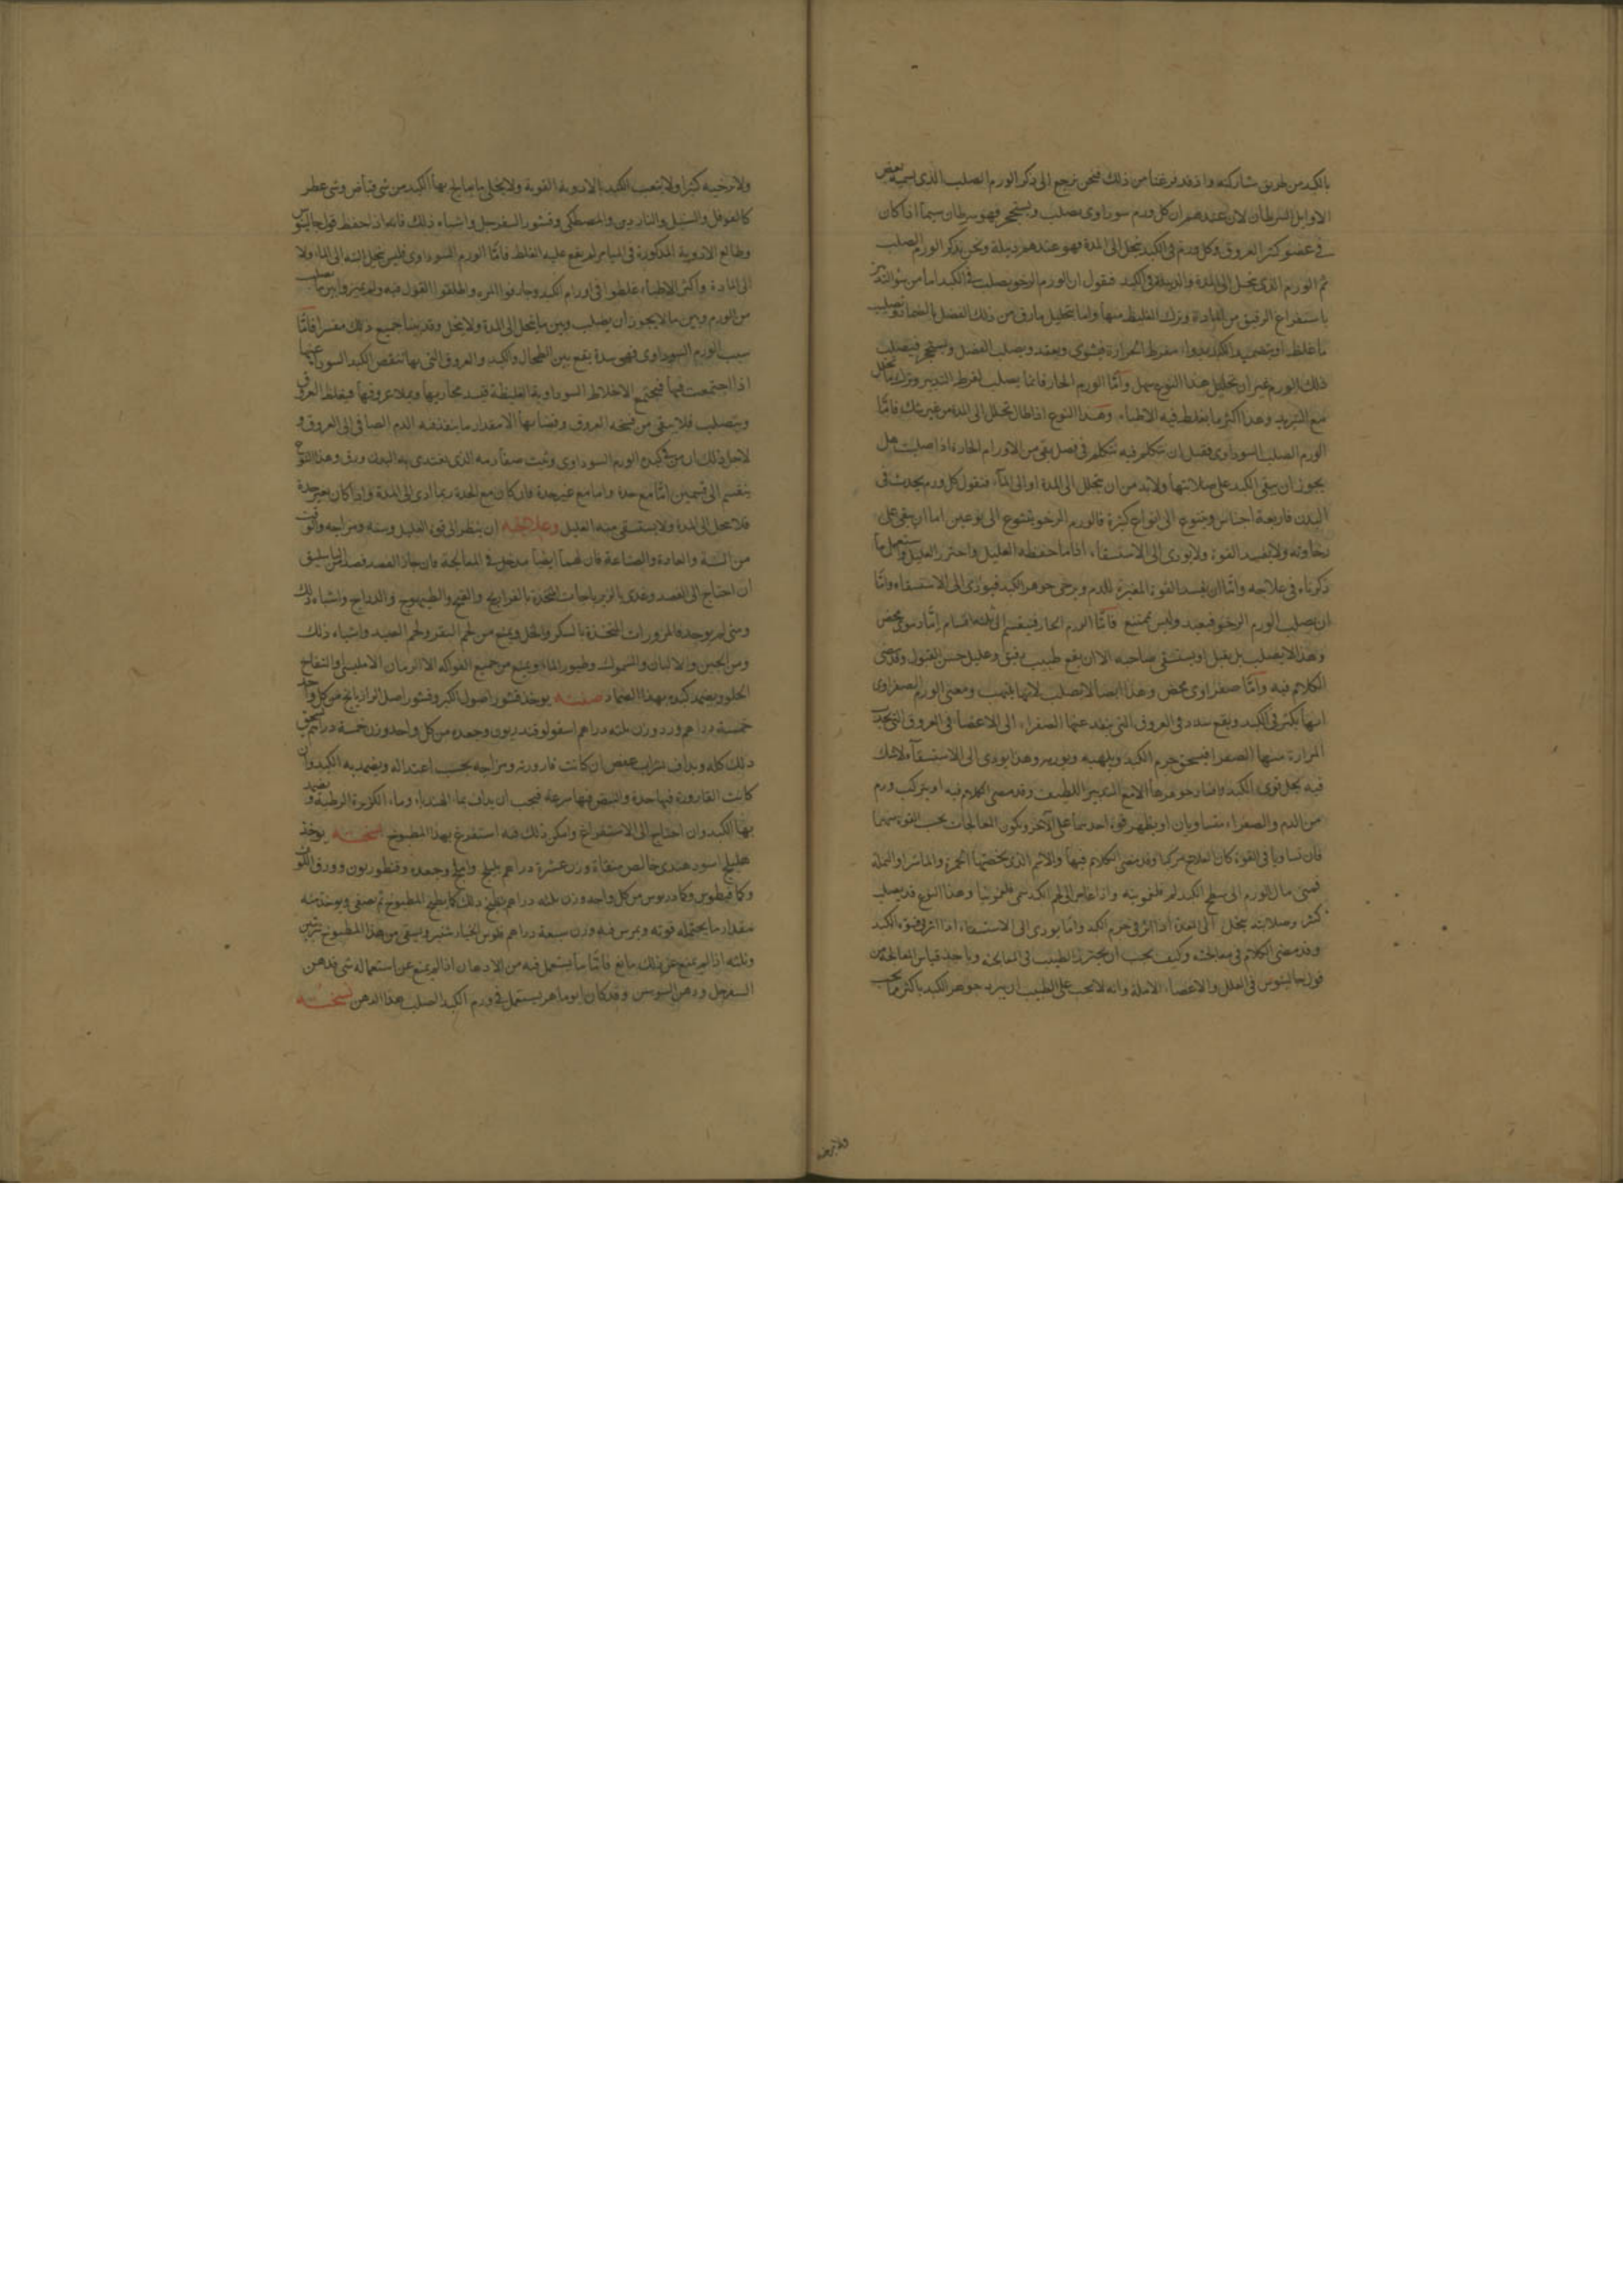 بالكبد من طريق مشاركته واذ قد فرغنا من ذلك فنحن نرجع الى ذكر الورم الصلب الذى يسميه بعض
الاوايل السرطان لان عندهم ان كل ورم سوداوى يصلب ويستحجر فهو سرطان سيما اذا كان
فى عضو كثير العروق وكل ورم فى الكبد يتحلل الى المدة فهو عندهم دبيلة ونحن نذكر الورم الصلب
ثم الورم الذى يتحلل الى المدة والدبيلة فى الكبد فنقول ان الورم الرخو يصلب فى الكبد اما من سو التدبير
باستفراغ الرقيق من المادة وترك الغليظ منها واما بتحليل ما رق من ذلك الفضل بالضماد وتصليب
ما غلظ او بتضميد الكبد بدواء مفرط الحرارة فيشوى ويعقد ويصلب الفضل ويستحجر فيصلب
ذلك الورم غير ان تحليل هذا النوع سهل وامّا الورم الحار فانما يصلب لفرط التبريد وترك ما يحلل
مع التبريد وهذا اكثر ما يغلط فيه الاطباء وهذا النوع اذا طال تحلل الى المدة من غير شك فامّا
الورم الصلب السوداوى فقبل ان نتكلم فيه نتكلم فى فصل بقى من الاورام الحارة اذا صلبت هل
يجوز ان يبقى الكبد على صلابتها ولابد من ان يتحلل الى المدة او الى الماء فنقول كل ورم يحدث فى
البدن فاربعة اجناس ويتنوع الى انواع كثيرة فالورم الرخو يتنوع الى نوعين اما ان يبقى على
رخاوته ولا يفسد القوة ولا يودى الى الاستسقاء اذا ما حفظه العليل واحترز العليل واستعمل ما
ذكرناه فى علاجه وامّا ان يفسد القوة المغيرة للدم ويرخى جوهر الكبد فيودى الى الاستسقاء وامّا
ان يصلب الورم الرخو فبعيد وليس بممتنع فامّا الورم الحار فينقسم الى ثلثة اقسام امّا دموى محض
وهذا لا يصلب بل يقبل او يستسقى صاحبه الا ان يقع طبيب رفيق وعليل حسن القبول وقد مضى
الكلام فيه وامّا صفراوى محض وهذا ايضا لا يصلب لانها يلتهب ومعنى الورم الصفراوى
انها يكثر فى الكبد ويقع سدد فى العروق التى ينفذ عنها الصفراء الى الاعضاء فى العروق التى تجذب
المرارة منها الصفرا فيسخن جرم الكبد ويلهبه ويورمه وهذا يودى الى الاستسقآ لا شك
فيه بحل قوى الكبد وافساد جوهرها الا مع التدبير اللطيف وقد مضى الكلام فيه او يتركب ورم
من الدم والصفراء متساويان او يظهر قوة احدهما على الاخر وتكون المعالجات بحسب القوة منهما
فان تساويا فى القوة كان العلاج مركبا وقد مضى الكلام فيها والاسم الذى يخصها الحمرة والماشرا والنملة
فمتى مال الورم الى سطح الكبد لم فلغمونيه واذا غاص الى لحم الكبد سمى فلغمونيا وهذا النوع قد يصلب
كثيرا وصلابته يتحلل الى المدة اذا اثر فى جرم الكبد وامّا يودى الى الاستسقاء اذا اثر فى قوة الكبد
وقد مضى الكلام فى معالجته وكيف يجب ان يحترز الطبيب فى المعالجة وياخذ قياس المعالجة من
قول جالينوس فى العلل والاعضاء الالمة وانه لا يجب على الطبيب ان يبرد جوهر الكبد باكثر مما يجب
ولا يرخيه
ولا يرخيه كثيرا ولا يتعب الكبد بالادوية القوية ولا يخلى ما يعالج بها الكبد من شى قابض وشى عطر
كالفوفل والسنبل والناردين والمصطكى وقشور السفرجل واشباه ذلك فانه اذا حفظ قول جالينوس
وطبائع الادوية المذكورة فى الميامر لم يقع عليه الغلط فامّا الورم السوداوى فليس يتحلل البتة الى الماء ولا
الى المادة واكثر الاطباء غلطوا فى اورام الكبد واطلقوا القول فيه ولم يميزوا بين ما يصلب
من الورم وبين ما لا يجوز ان يصلب وبين ما يتحلل الى المدة ولا يتحلل وقد بينا جميع ذلك مفسرا فامّا
سبب الورم السوداوى فهو سدة يقع بين الطحال والكبد والعروق التى بها تنقص الكبد السودا عنها
اذا اجتمعت فيها فيجتمع الاخلاط السوداوية الغليظة فيسد مجاريها ويملا عروقها فيغلظ العروق
ويتصلب فلا يبقى من فسحة العروق وفضايها الا مقدار ما ينفذ فيه الدم الصافى الى العروق و
لاجل ذلك ان من فى كبده الورم السوداوى وثبت صفا دمه الذى يغتدى به البدن ورق وهذا النوع
ينقسم الى قسمين امّا مع حدة واما مع غير حدة فان كان مع الحدة ربما ادى الى المدة واذا كان بغير حدة
فلا يتحلل الى المدة ولا يستسقى منه العليل وعلاجه ان ينظر الى قوة العليل وسنه ومزاجه والوقت
من السنة والعادة والصناعة فان لهما ايضا مدخل فى المعالجة فان جاز الفصد فصد الباسليق
ان احتاج الى الفصد وغذى بالزيرباجات المتخذة بالفراريج والقبج والطيهوج والدراج واشباه ذلك
ومتى لم يوجد فالمزورات المتخذة بالسكر والخل ويمنع من لحم البقر ولحم الصيد واشباه ذلك
ومن الجبن والالبان والسموك وطيور الماء ويمنع من جميع الفواكه الا الرمان الامليسى والتفاح
الحلو ويضمد كبده بهذا الضماد صفته يوخذ قشور اصول الكبر وقشور اصل الرازيانج من كل واحد
خمسة دراهم ورد وزن ثلثة دراهم اسقولوقندريون وجعدة من كل واحد وزن خمسة دراهم يسحق
ذلك كله ويداف بشراب عفص ان كانت قارورته ومزاجه بحسب اعتداله ويضمد به الكبد وان
كانت القارورة فيها حدة والنبض فيها سرعة فيجب ان يداف بما الهندباء وماء الكزبرة الرطبة ويضمد
بها الكبد وان احتاج الى الاستفراغ وامكن ذلك فيه استفرغ بهذا المطبوخ نسخته يوخذ
هليلج اسود هندى خالص منقاة وزن عشرة دراهم بليلج واملج وجعدة وقنطوريون وورق
وكمافيطوس وكمادريوس من كل واحد وزن ثلثة دراهم يطبخ ذلك كما يطبخ المطبوخ ثم يصفى ويوخذ منه
مقدار ما يحتمله قوته ويمرس فيه وزن سبعة دراهم فلوس الخيار شنبر ويسقى من هذا المطبوخ مرتين
وثلثه اذا لم يمنع عن ذلك مانع فامّا ما يستعمل فيه من الادهان اذا لم يمنع عن استعماله شى فدهن
السفرجل ودهن السوسن وقد كان ابو ماهر يستعمل فى ورم الكبد الصلب هذا الدهن نسخته